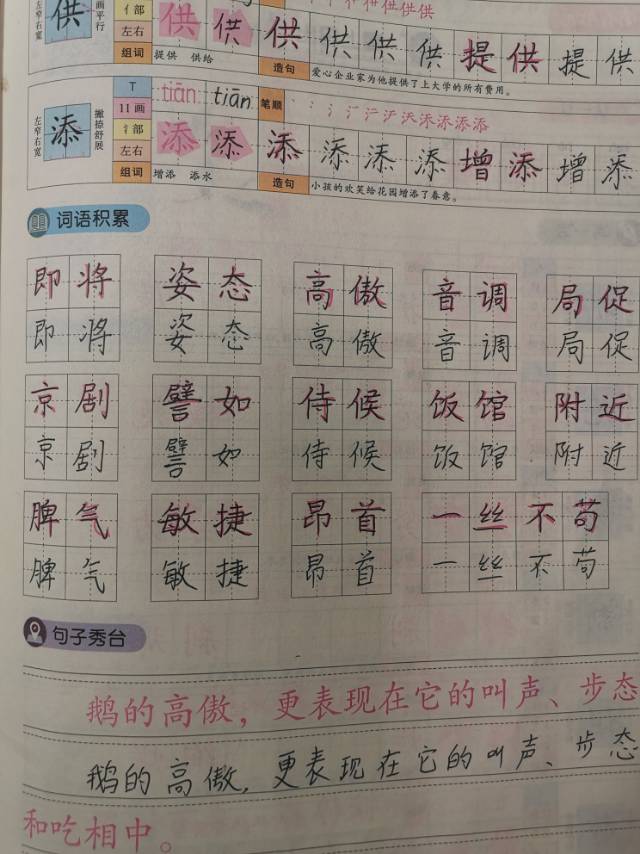 画平行
左窄右宽
供
亻部
供 供 供 供 供 供 提 供 提 供
左右
组词 提供 供给 造句 爱心企业家为他提供了上大学的所有费用。
左窄右宽
添
撇捺舒展
T tiān tiān 笔顺
11画
氵部
添 添 添 添 添 添 增 添 增 添
左右
组词 增添 添水 造句 小孩的欢笑给花园增添了春意。
词语积累
即将 姿态 高傲 音调 局促
即将 姿态 高傲 音调 局促
京剧 譬如 侍候 饭馆 附近
京剧 譬如 侍候 饭馆 附近
脾气 敏捷 昂首 一丝不苟
脾气 敏捷 昂首 一丝不苟
句子秀台
鹅的高傲，更表现在它的叫声、步态
鹅的高傲，更表现在它的叫声、步态
和吃相中。